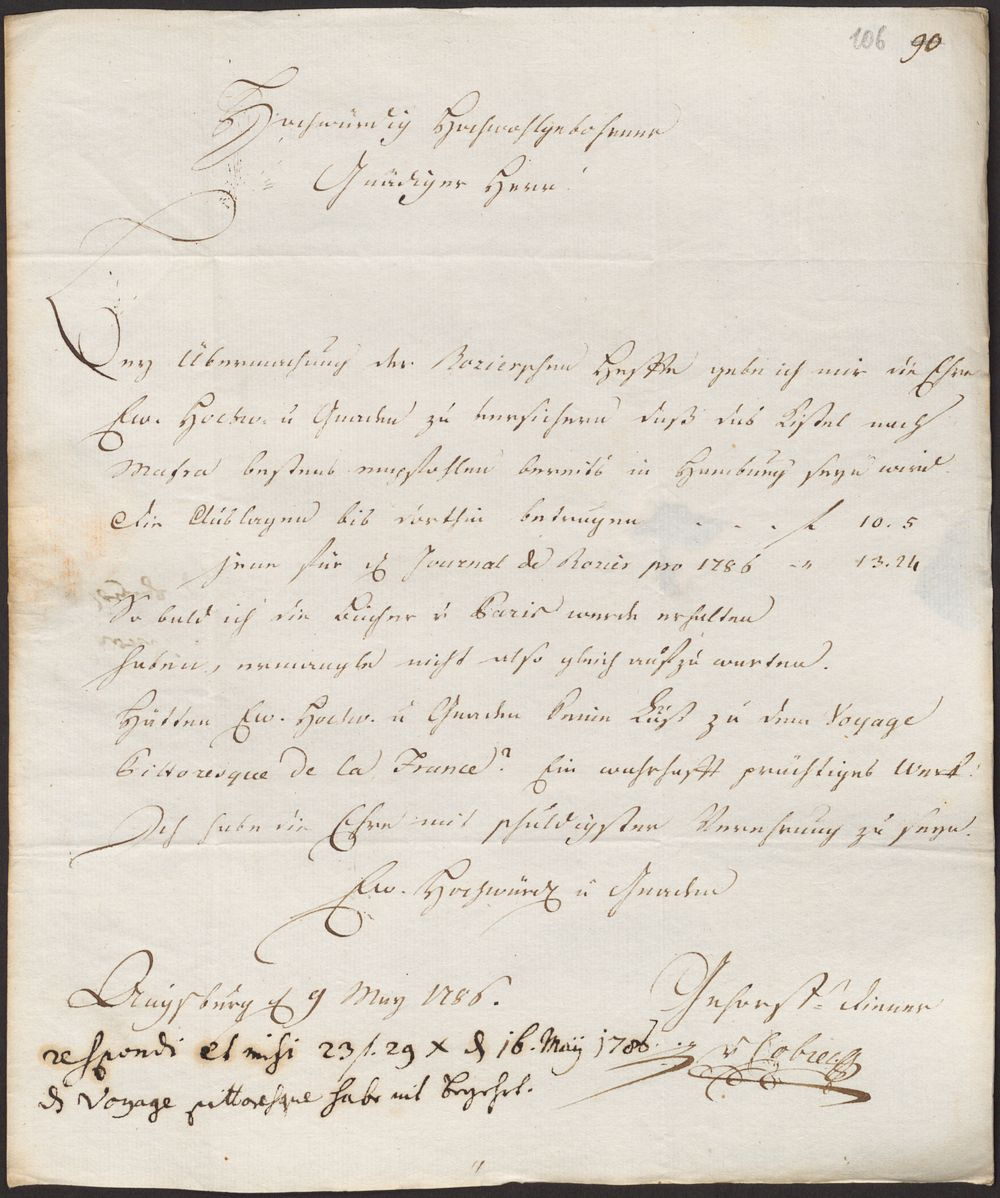 106 90
Hochwürdig Hochwohlgebohrner
Gnädiger Herr!
Bey Übermachung der Rozierschen Heffte gebe ich mir die Ehre
Ew. Hochw. u Gnaden zu versichern daß das Kistel nach
Mafra bestens empfohlen bereits in Hamburg seyn wird.
Die Auslagen bis dorthin betragen . . . f 10. 5
jene für das Journal de Rozier pro 1786 - " 13. 24
So bald ich die Bücher v Paris werde erhalten
haben, ermangle nicht also gleich aufzuwarten.
Hätten Ew. Hochw. u Gnaden keine Lust zu dem Voyage
Pittoresque de la France? Ein wahrhafft prächtiges Werk!
Ich habe die Ehre mit schuldigster Verehrung zu seyn.
Ew. Hochwürd u Gnaden
Augsburg d 9 May 1786.
Gehorst Diener
v Cobres
respondi et misi 23 f. 29 x d 16. Maÿ 1786.
d Voyage pittoresque habe nit begehrt.